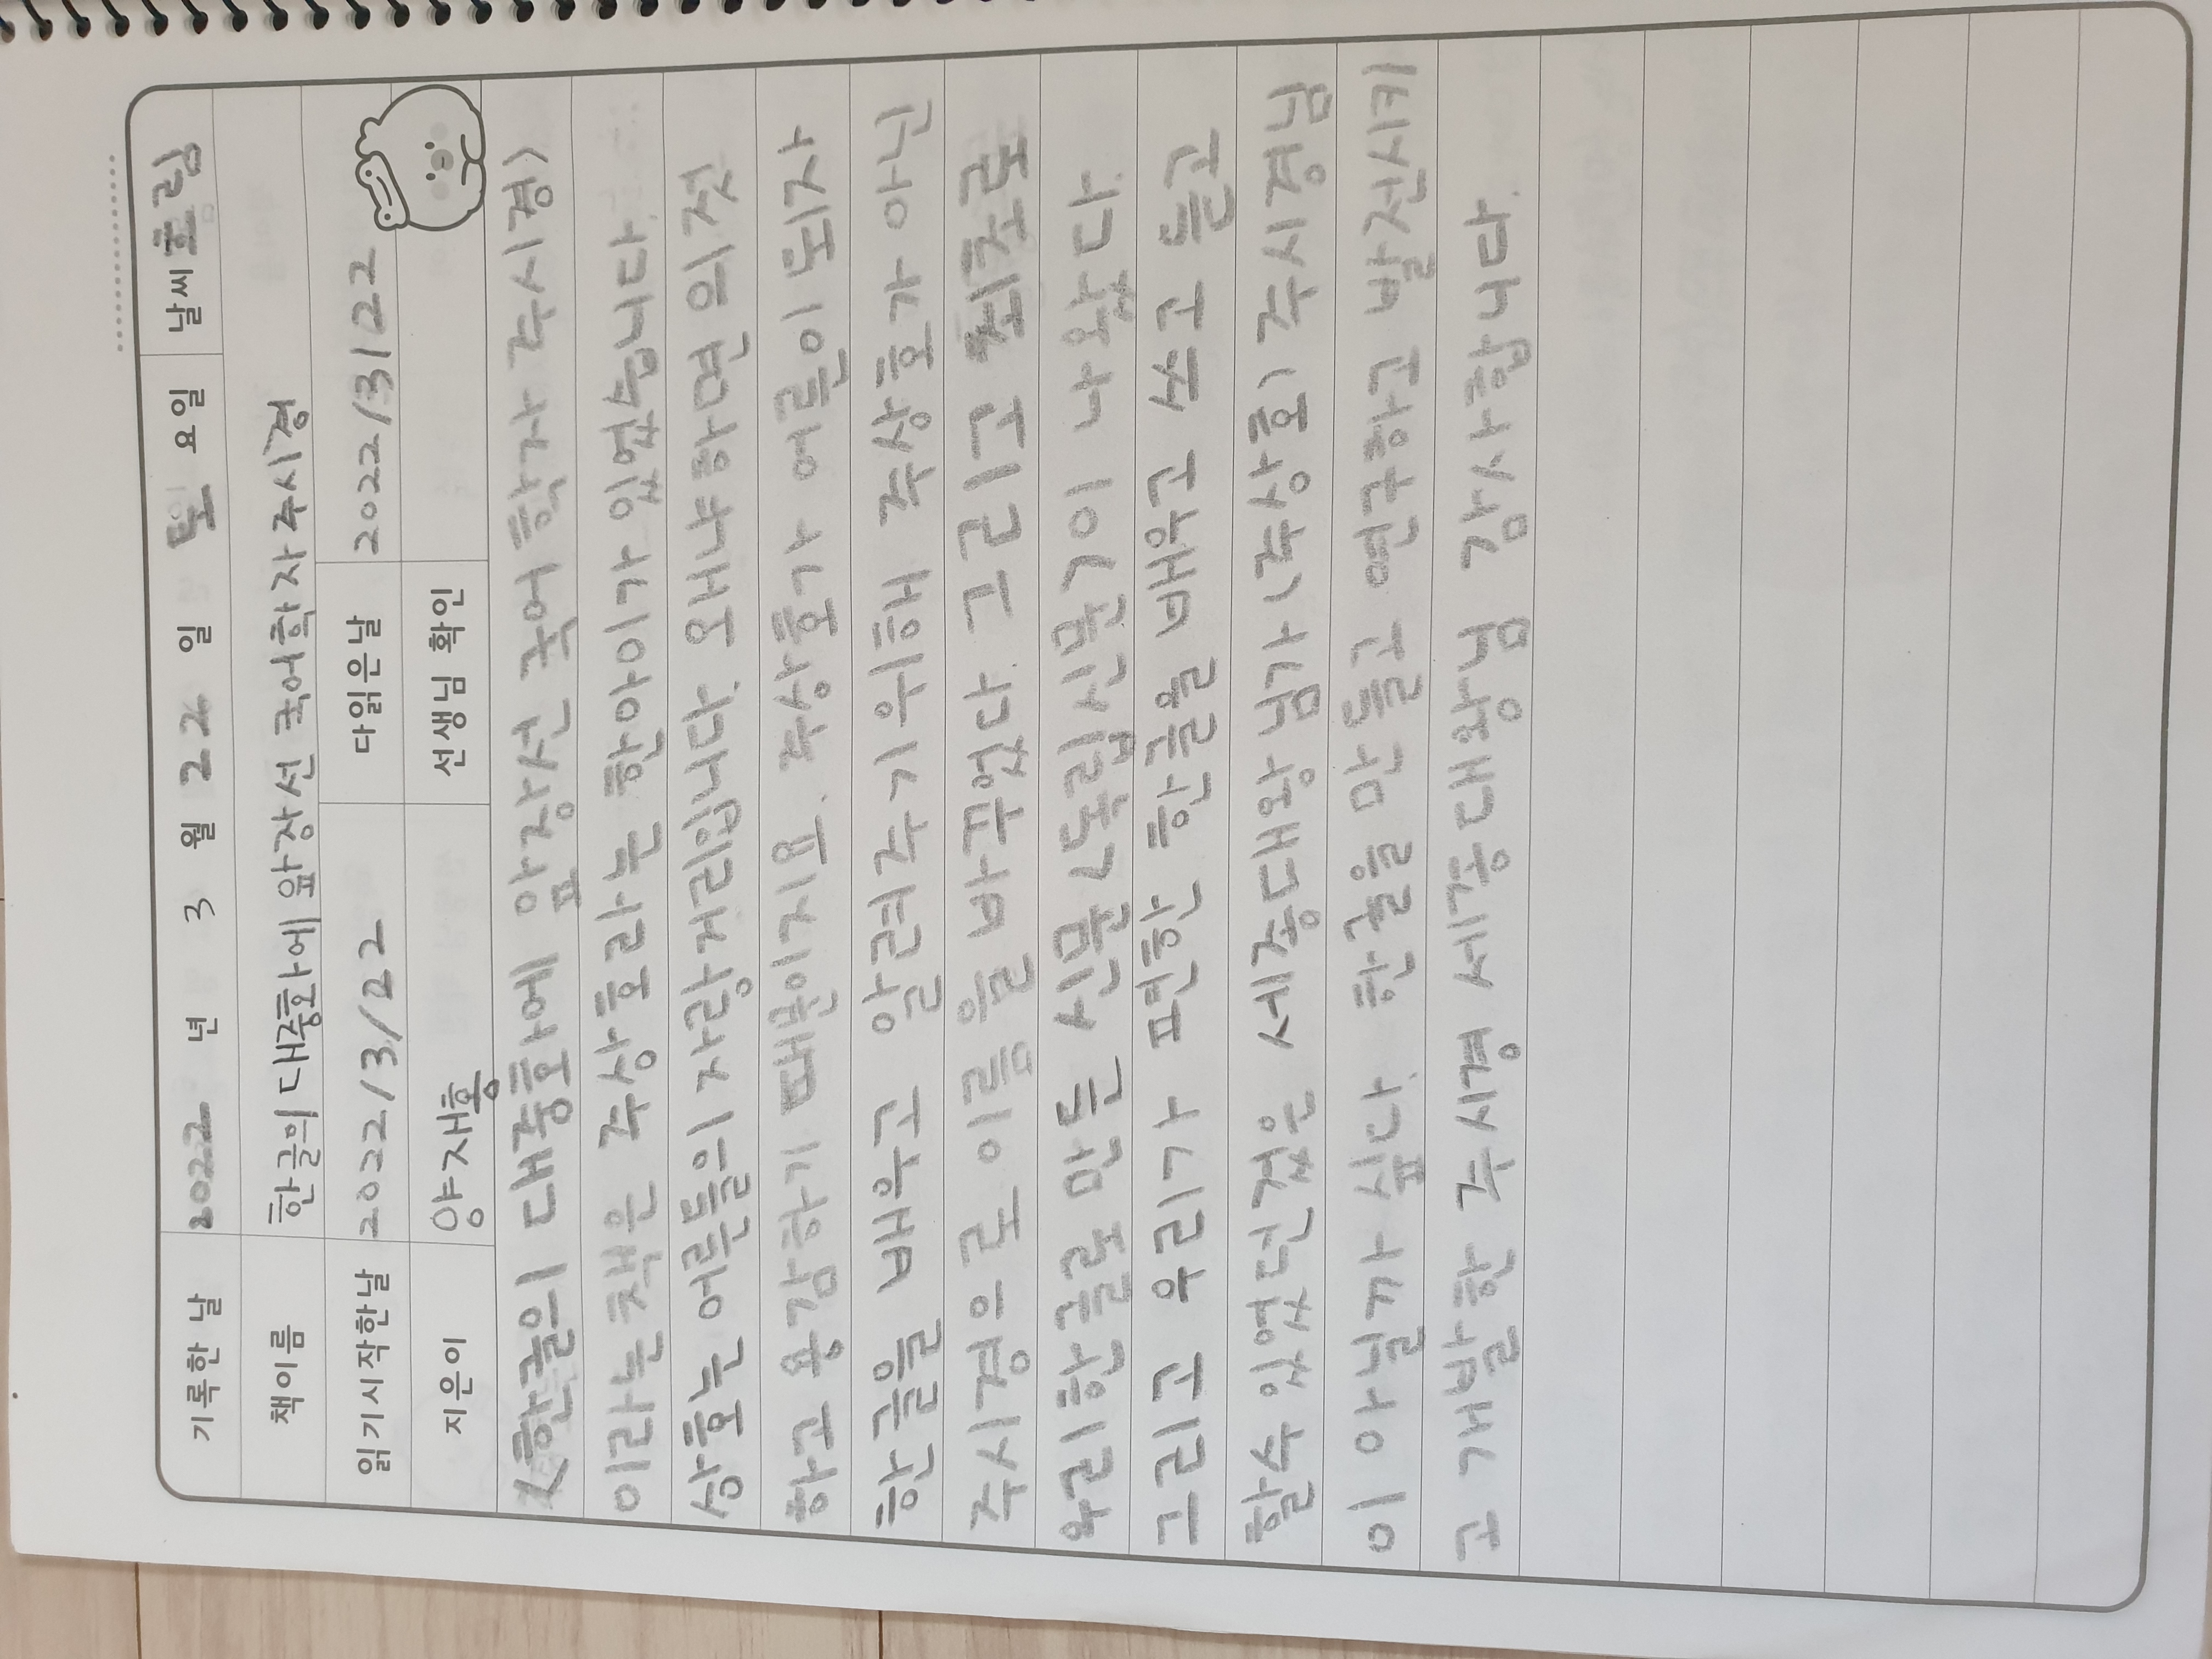 기록한 날 2022 년 3 월 22 일 토 요일 날씨 흐림
책이름 한글의 대중화에 앞장선 국어학자 주시경
읽기시작한날 2022/3/22 다읽은날 2022/3/22
지은이 양재홍 선생님 확인
<한글의 대중화에 앞장선 국어학자 주시경>
이라는 책은 주상호라는 한아이가 있었습니다.
상호는 어른들의 자랑거리입니다. 왜냐하면 의젓
하고 용감하기 때문이지요. 주상호가 어른이 되자
한글을 배우고 알려주기위해 주상호가 아닌
주시경으로 이름을 바꾸었다. 그리고 최초로
우리한글로 만든 신문<독립신문>이 나왔다.
그리고 우리가 편한 한글을 배우고 쓰고 듣고
할수 있었던것은 세종대왕님가(주상호) 주시경님
이 아닐까 싶다. 한글을 만들고 연구하고 발전시키
고 개발한 주시경 세종대왕님 감사합니다.